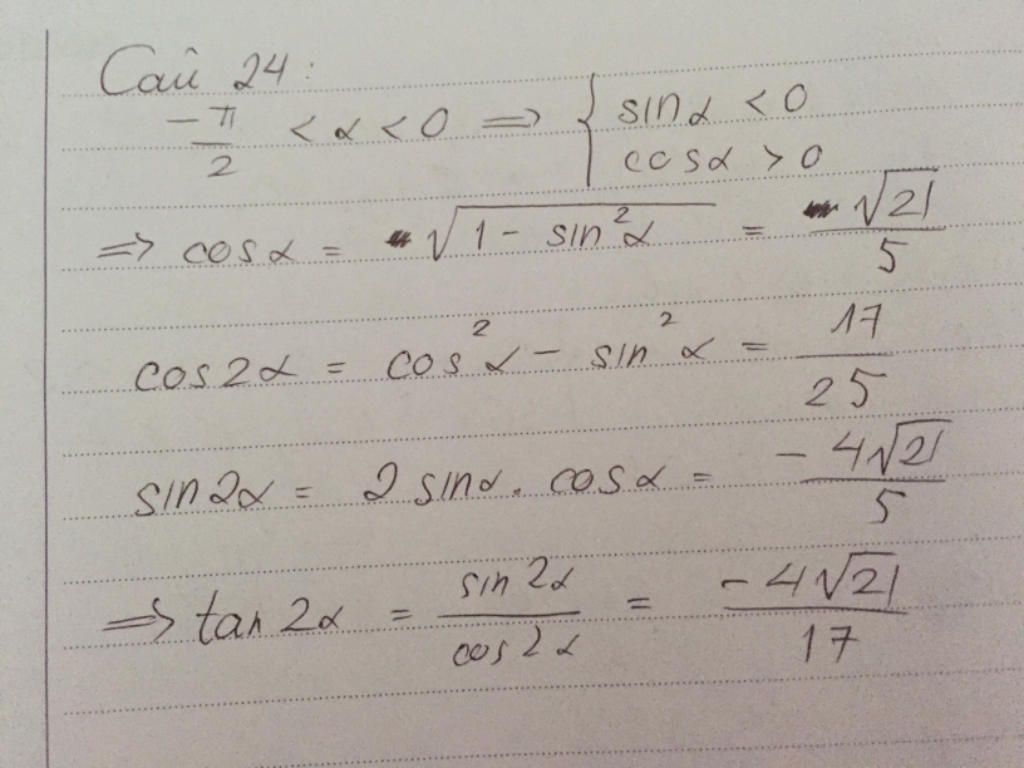 Câu 24:
-π/2 < α < 0 => { sinα < 0
cosα > 0
=> cosα = √(1 - sin²α) = √21/5
cos2α = cos²α - sin²α = 17/25
sin2α = 2 sinα . cosα = -4√21/5
=> tan2α = sin2α/cos2α = -4√21/17